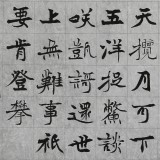 天攬月可下
五洋捉鱉談
咲凱謌還世
上無難事祇
要肯登攀